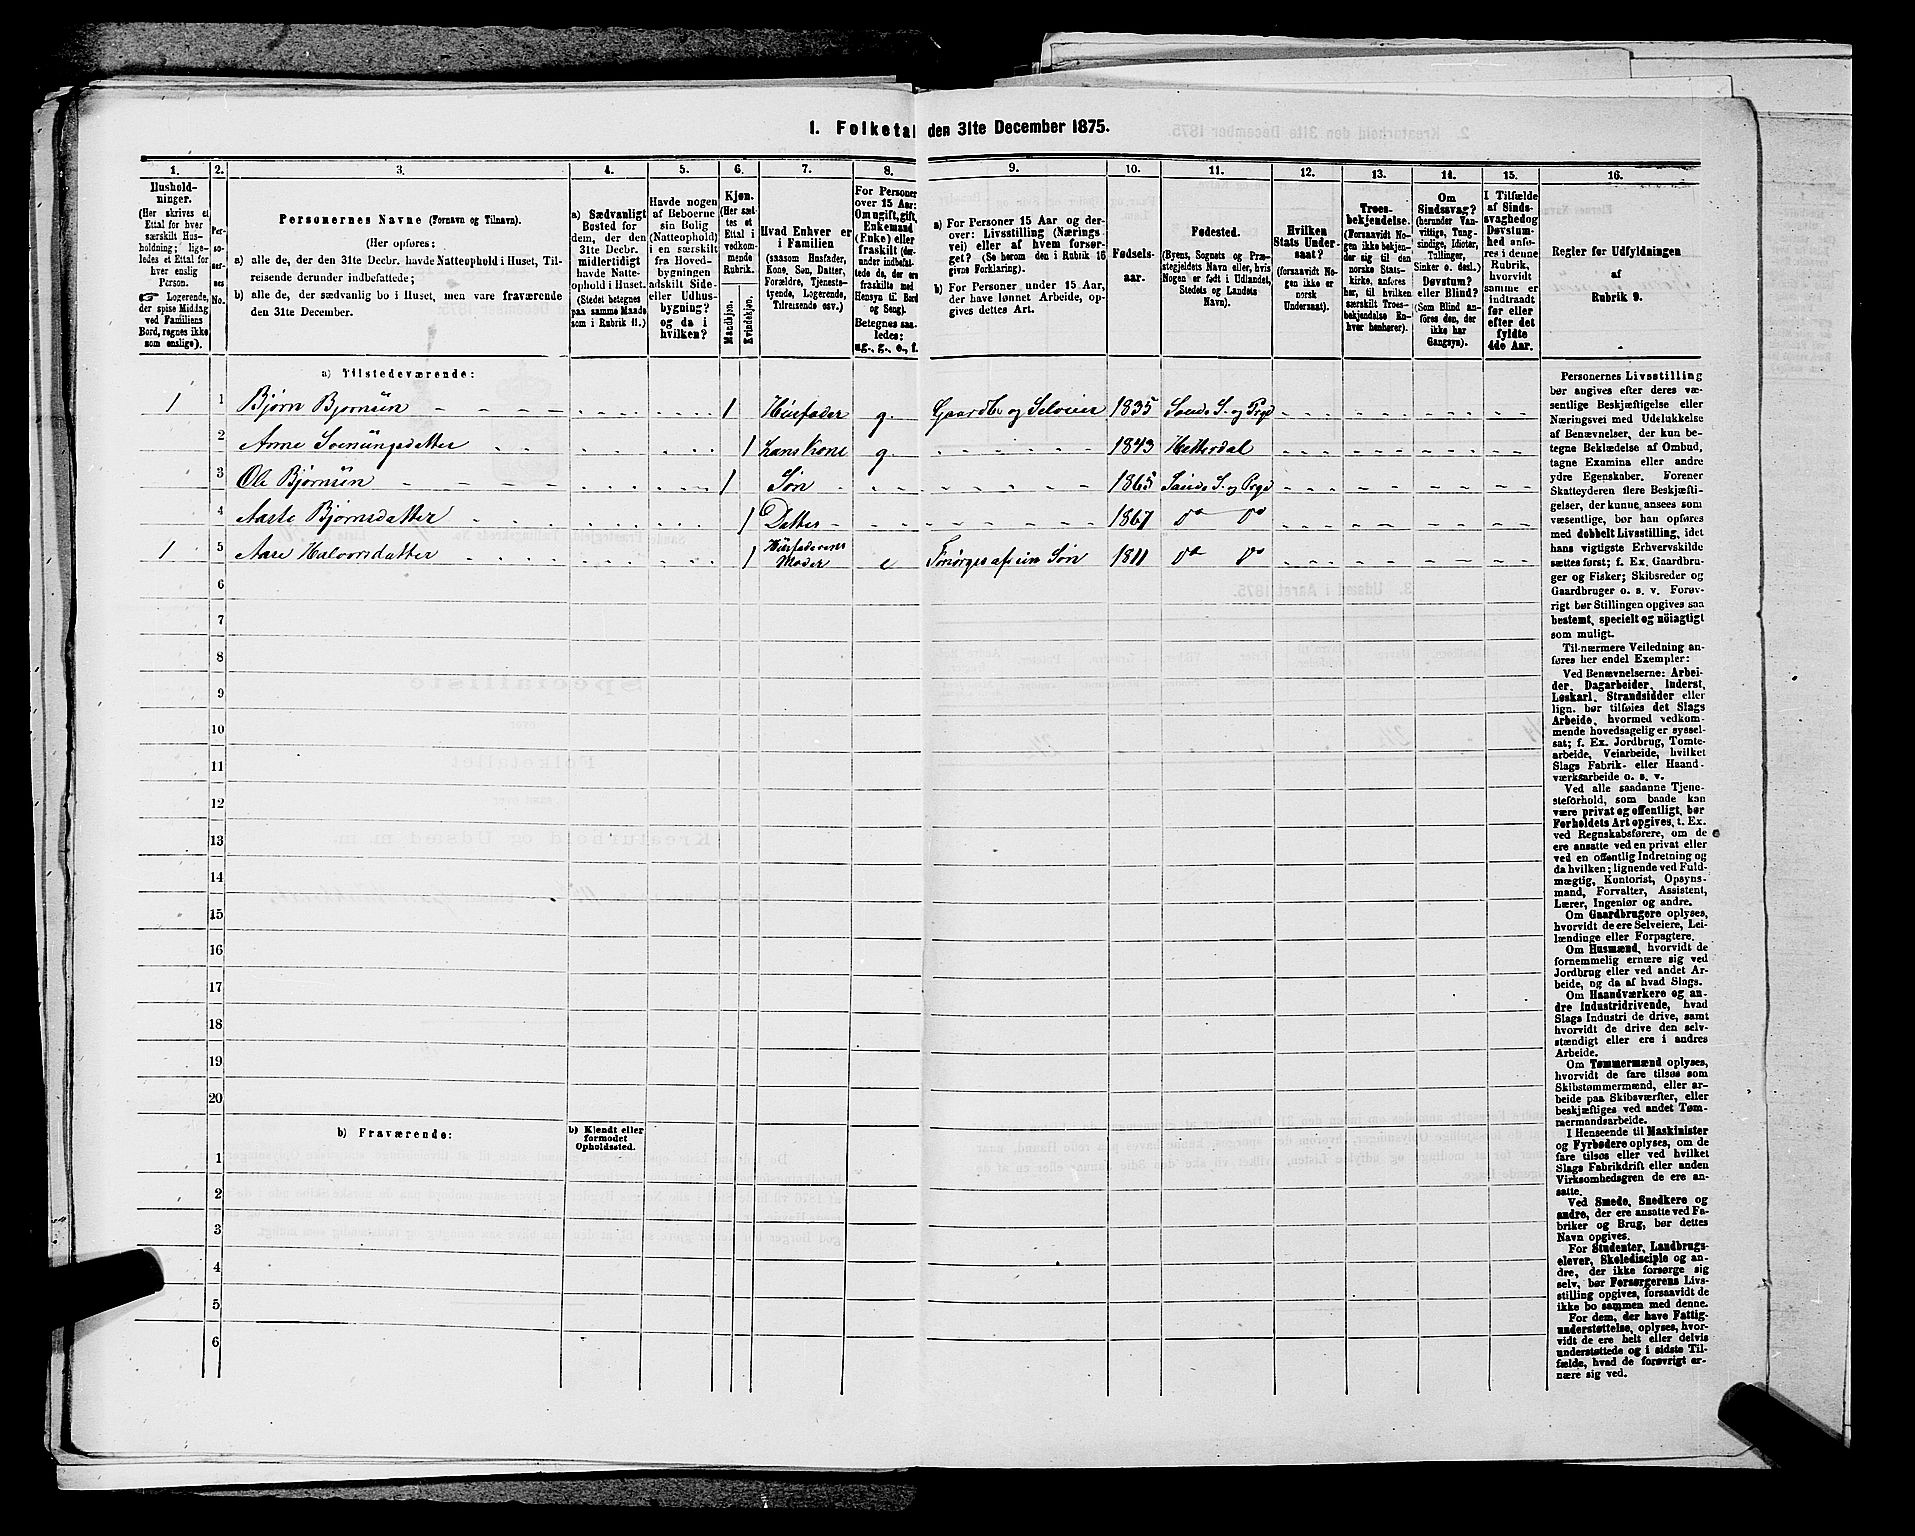 1. Folketal den 31te December 1875.
1. 2. 3. 4. 5. 6. 7. 8. 9. 10. 11. 12. 13. 14. 15. 16.
Hushold-
ninger.
(Her skrives et
Ettal for hver
særskilt Hus-
holdning; lige-
ledes et Ettal for
hver enslig
Person.
☞ Logerende,
der spise Middag
ved Familiens
Bord, regnes ikke
som enslige).
Per-
so-
ner-
nes
No.
Personernes Navne (Fornavn og Tilnavn).
(Her opføres:
a) alle de, der den 31te Decbr. havde Natteophold i Huset, Til-
reisende derunder indbefattede;
b) alle de, der sædvanlig bo i Huset, men vare fraværende
den 31te December.
a) Sædvanligt
Bosted for
dem, der den
31te Decbr.
midlertidigt
havde Natte-
ophold i Huset.
(Stedet betegnes
paa samme Maade
som i Rubrik 11.)
Havde nogen
af Beboerne
sin Bolig
(Natteophold)
i en særskilt
fra Hoved-
bygningen
adskilt Side-
eller Udhus-
bygning?
og da i
hvilken?
Kjøn.
(Her sæt-
tes et
Ettal i
vedkom-
mende
Rubrik.
Mandkjøn.
Kvindekjøn.
Hvad Enhver er
i Familien
(saasom Husfader,
Kone, Søn, Datter,
Forældre, Tjeneste-
tyende, Logerende,
Tilreisende osv.)
For Personer
over 15 Aar:
Om ugift, gift,
Enkemand
(Enke) eller
fraskilt (der-
under indbefat-
tede de, der ere
fraskilte med
Hensyn til Bord
og Seng).
Betegnes saa-
ledes:
ug., g., e., f.
a) For Personer 15 Aar og der-
over: Livsstilling (Nærings-
vei) eller af hvem forsør-
get? (Se herom den i Rubrik 16
givne Forklaring).
b) For Personer under 15 Aar,
der have lønnet Arbeide, op-
gives dettes Art.
Fødsels-
aar.
Fødested.
(Byens, Sognets og Præ-
stegjeldets Navn eller, hvis
Nogen er født i Udlandet,
Stedets og Landets
Navn).
Hvilken
Stats Under-
saat?
(forsaavidt No-
gen ikke er
norsk
Undersaat).
Troes-
bekjendelse.
(Forsaavidt No-
gen ikke bekjen-
der sig til den
norske Stats-
kirke, anføres
her, til hvilken
særskilt Troes-
bekjendelse En-
hver henhører).
Om
Sindssvag?
(herunder Van-
vittige, Tung-
sindige, Idioter,
Tullinger,
Sinker o. desl.)
Døvstum?
eller Blind?
(Som Blind an-
føres den, der
ikke har
Gangsyn).
I Tilfælde
af Sinds-
svaghed og
Døvstum-
hed anfø-
res i denne
Rubrik,
hvorvidt
samme er
indtraadt
før eller
efter det
fyldte
4de Aar.
Regler for Udfyldningen
af
Rubrik 9.
a) Tilstedeværende:
1 1 Bjørn Bjørnsen 1 Husfader g. Gaardb. og Selveier 1835 Sande S. og Prgd
2 Anne Svenungsdatter 1 hans Kone g. 1843 Hitterdal
3 Ole Bjørnsen 1 Søn 1865 Sande S. og Prgd
4 Aaste Bjørnsdatter 1 Datter 1867 do do
1 5 Aase Halvorsdatter 1 Husfaderens
Moder e Forsørges af sin Søn 1811 do do
6
7
8
9
10
11
12
13
14
15
16
17
18
19
20
b) Fraværende:
b) Kjendt eller
formodet
Opholdssted.
1
2
3
4
5
6
Personernes Livsstilling
bør angives efter deres væ-
sentlige Beskjæftigelse eller
Næringsvei med Udelukkelse
af Benævnelser, der kun be-
tegne Beklædelse af Ombud,
tagne Examina eller andre
ydre Egenskaber. Forener
Skatteyderen flere Beskjæfti-
gelser, der kunne ansees som
væsentlige, bør han opføres
med dobbelt Livsstilling, idet
hans vigtigste Erhvervskilde
sættes først; f. Ex. Gaardbru-
ger og Fisker; Skibsreder og
Gaardbruger o. s. v. Forøv-
rigt bør Stillingen opgives saa
bestemt, specielt og nöiagtigt
som muligt.
Til nærmere Veiledning an-
føres her endel Exempler:
Ved Benævnelserne: Arbei-
der, Dagarbeider, Inderst,
Løskarl, Strandsidder eller
lign. bør tilføies det Slags
Arbeide, hvormed vedkom-
mende hovedsagelig er syssel-
sat; f. Ex. Jordbrug, Tomte-
arbeide, Veiarbeide, hvilket
Slags Fabrik- eller Haand-
værksarbeide o. s. v.
Ved alle saadanne Tjene-
steforhold, som baade kan
være privat og offentligt, bør
Forholdets Art opgives, t. Ex.
ved Regnskabsførere, om de
ere ansatte ved en privat eller
ved en offentlig Indretning og
da hvilken; lignende ved Fuld-
mægtig, Kontorist, Opsyns-
mand, Forvalter, Assistent,
Lærer, Ingeniør og andre.
Om Gaardbrugere oplyses,
hvorvidt de ere Selveiere, Lei-
lændinge eller Forpagtere.
Om Husmænd, hvorvidt de
fornemmelig ernære sig ved
Jordbrug eller ved andet Ar-
beide, og da af hvad Slags.
Om Haandværkere og an-
dre Industridrivende, hvad
Slags Industri de drive, samt
hvorvidt de drive den selv-
stændigt eller ere i andres
Arbeide.
Om Tømmermænd oplyses,
hvorvidt de fare tilsøs som
Skibstømmermænd, eller ar-
beide paa Skibsværfter, eller
beskjæftiges ved andet Tøm-
mermandsarbeide.
I Henseende til Maskinister
og Fyrbødere oplyses, om de
fare tilsøs eller ved hvilket
Slags Fabrikdrift eller anden
Virksomhedsgren de ere an-
satte.
Ved Smede, Snedkere og
andre, der ere ansatte ved Fa-
briker og Brug, bør dettes
Navn opgives.
For Studenter, Landbrugs-
elever, Skoledisciple og an-
dre, der ikke forsørge sig
selv, bør Forsørgerens Livs-
stilling opgives, forsaavidt de
ikke bo sammen med denne.
For dem, der have Fattig-
understøttelse, oplyses, hvor-
vidt de ere helt eller delvis
understøttede og i sidste Til-
fælde, hvad de forøvrigt er-
nære sig ved.